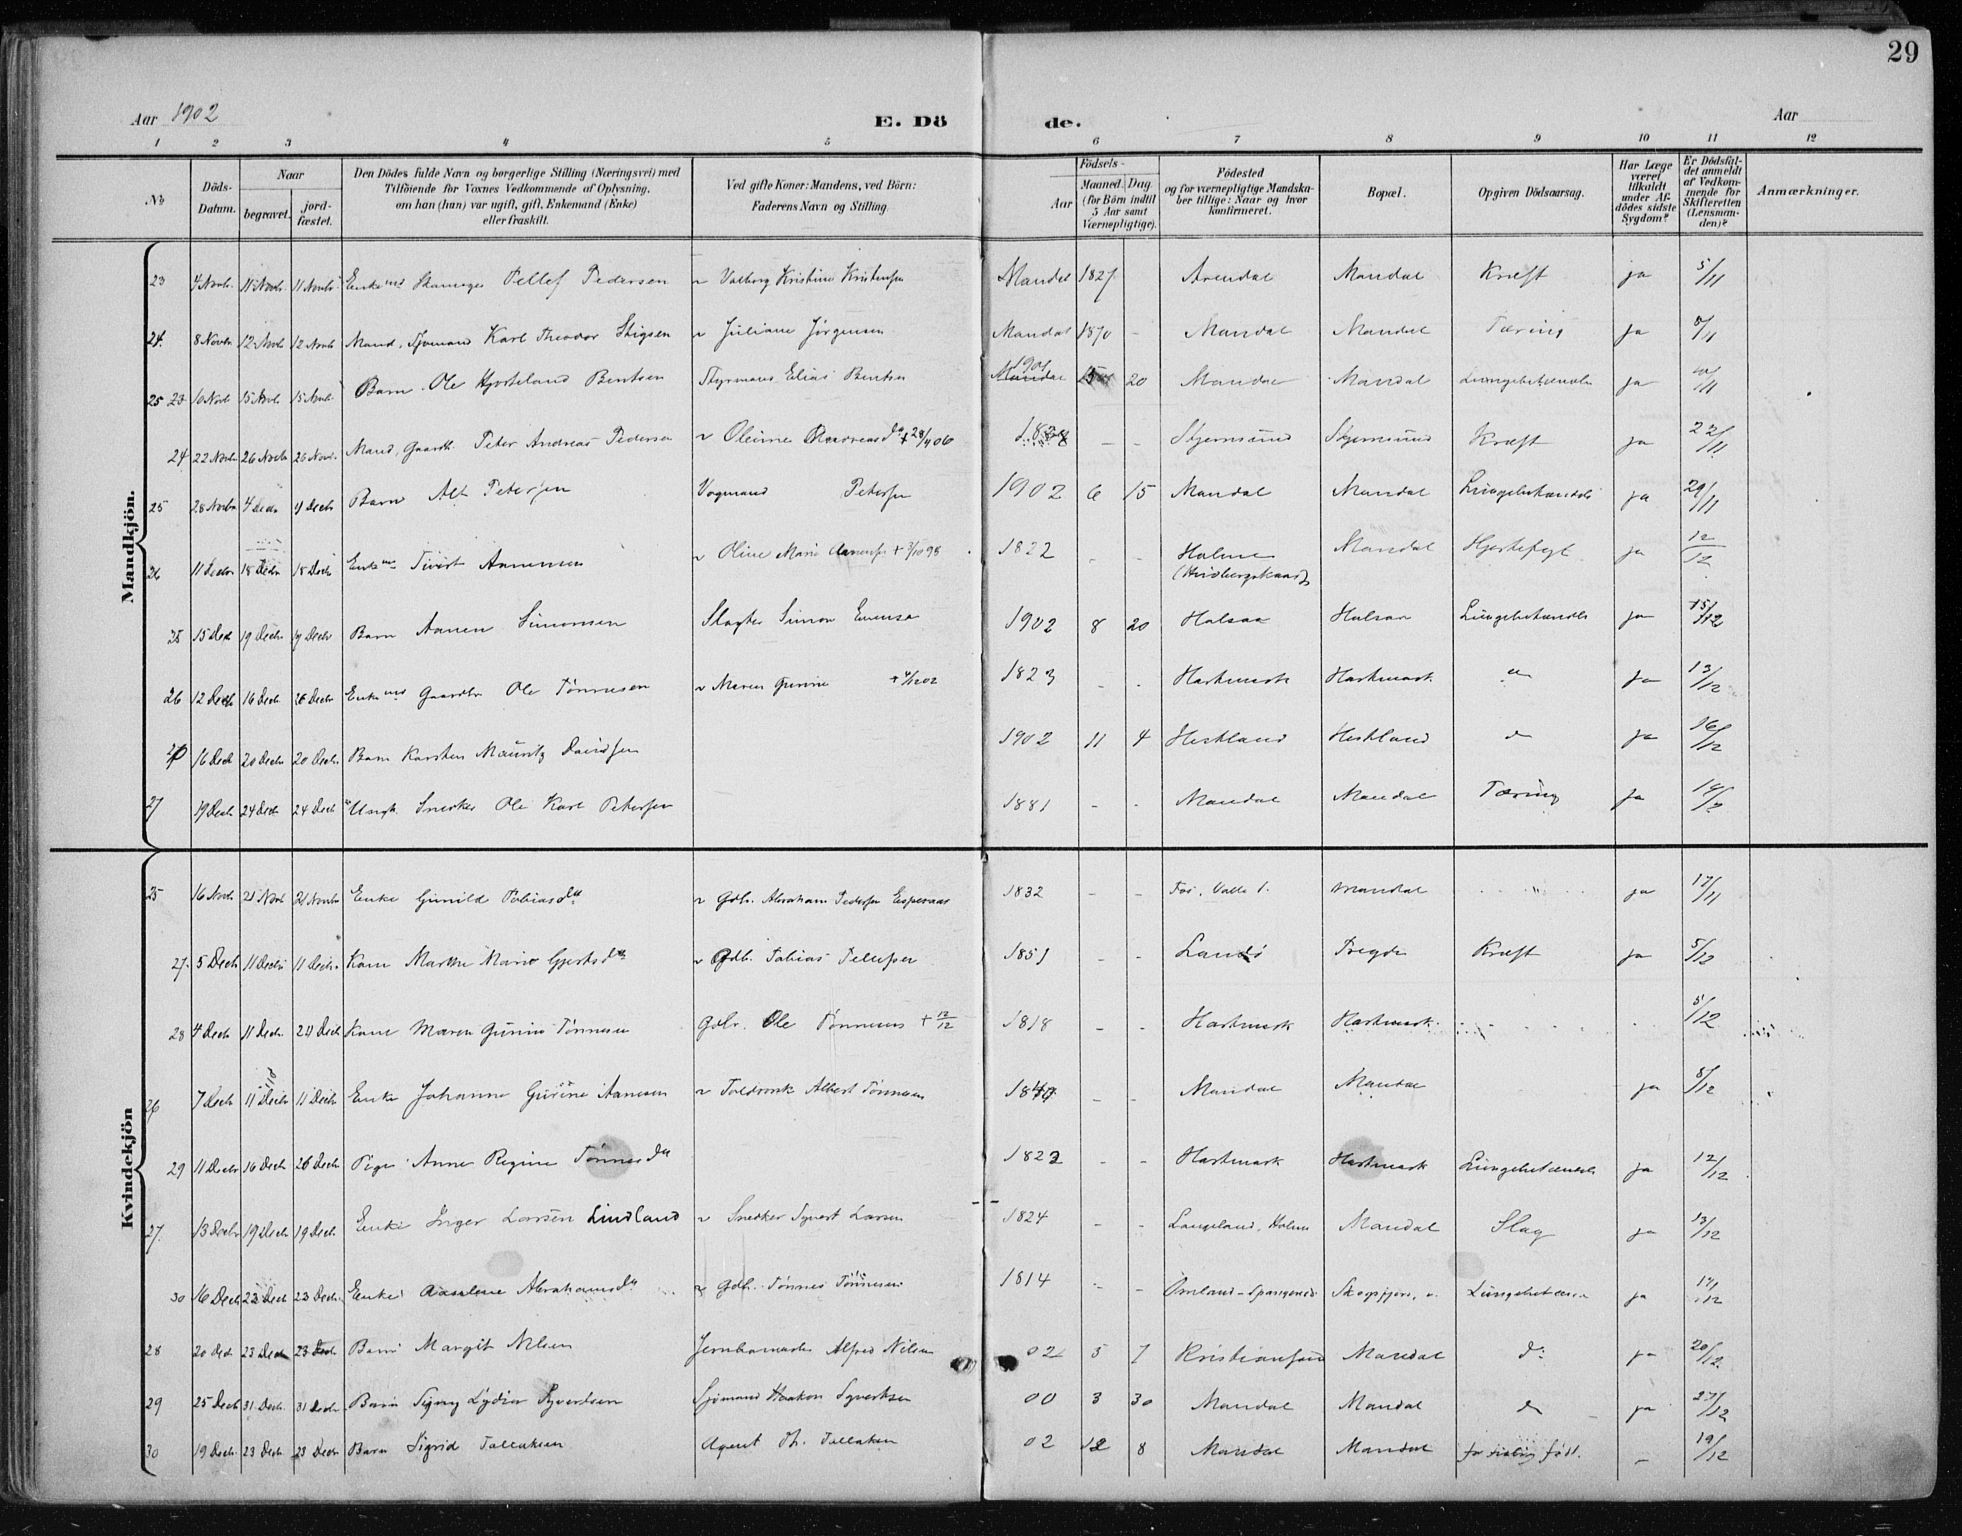 29
Aar 1902 E. Dö de. Aar
1 2 3 4 5 6 7 8 9 10 11 12
№ Döds-Datum. Naar begravet. jord-fæstet. Den Dödes fulde Navn og borgerlige Stilling (Næringsvei) med Tilföiende for Voxnes Vedkommende af Oplysning, om han (hun) var ugift, gift, Enkemand (Enke) eller fraskilt. Ved gifte Koner: Mandens, ved Börn: Faderens Navn og Stilling. Födsels- Aar Maaned. Dag (for Börn indtil 5 Aar samt Værnepligtige). Födested og for værnepligtige Mandska-ber tillige: Naar og hvor konfirmeret. Bopæl. Opgiven Dödsaarsag. Har Læge været tilkaldt under Af-dödes sidste Sygdom? Er Dödsfal-det anmeldt af Vedkom-mende for Skifteretten (Lensman-den)? Anmærkninger.
Mandkjön.
23 4 Novb. 11 Novb 11 Novb Enkemd Pellef Pedersen ~ Valborg Kristine Kristensen Mandal 1827 Arendal Mandal Kræft ja 5/11
24. 8 Novbr 12 Novb 12 Novb Mand, Sjømand Karl Theodor Stigsen ~ Juliane Jørgensen Mandal 1870 - Mandal Mandal Tæring ja 8/11
25 23 10 Novb 15 Novb 15 Novb Barn Ole Hjorteland Bentsen Styrmand Elias Bentsen Mandal 1901 20 Mandal Mandal Lungebetændelse ja 10/11
24 22 Novb 26 Novb 26 Novb. Mand, Gaardb. Peter Andreas Pedersen ~ Oleine Andreasda + 28/4 06 1828 - - Skjernsund Skjernsund Kræft ja 22/11
25 28 Novbr 4 Decbr 4 Decbr Barn Alf Petersen Vognmand Petersen 1902 6 15 Mandal Mandal Lungebetændelse ja 29/11
26 11 Decbr 18 Decbr 18 Decbr Enkemd Sivert Aanensen ~ Oline Marie Aanensen + 98 1822 - - Holme Mandal Hjertefejl ja 12/12
25 15 Decb 19 Decbr 19 Decbr Barn Aanen Simonsen Slagter Simon Evensen 1902 8 20 Halsaa Halsaa Lungebetændelse ja 15/12
26 12 Decb 16 Decb 26 Decbr Enkemd Gaardbr Ole Tønnesen ~ Maren Gurine + 4/12 02 1823 - - Hartmark Hartmark " ja 13/12
27 16 Decb 20 Decbr 20 Decbr Barn Karsten Mauritz Davidsen 1902 11 4 Hesteland Hesteland do ja 16/12
27 19 Decb 24 Decb 24 Decb Ungk. Snedker Ole Karl Petersen 1881 - - Mandal Mandal Tæring ja 19/12
Kvindekjön
25 16 Novb 21 Novb 21 Novbr Enke Gunild Tobiasda ~ Gdbr. Abraham Pedersen 1832 - - Valle Mandal ja 17/11
27. 5 Decb 11 Decbr 11 Decbr Kone Marthe Marie Gjertsda ~ Gdb. Tobias Tellefsen 1851 - - Landø Tregde Kræft ja 5/12
28 4 Decb 11 Decbr 24 Decb Kone Maren Gurine Tønnesen Gdbr. Ole Tønnesen + 12/12 1818 - - Hartmark Hartmark 5/12
26 7 Decb 11 Decbr 11 Decbr Enke Johanne Gurine Aanesen ~ Toldvagt Albert Tønnesen 1840 - - Mandal Mandal ja 8/12
29 11 Decbr 16 Decb 26 Decb Pige Anne Regine Tønnesda 1822 - - Hartmark Hartmark Lungebetændelse ja 12/12
27. 13 Decbr 19 Decb 19 Decb Enke Inger Larsen Lindland ~ Snedker Syvert Larsen 1824 - - Langeland, Holme Mandal Slag ja 13/12
30 16 Decb 23 Decb 23 Decb Enke Abrahamsda ~ Gdbr. Tønnes Tønnesen 1814 - - Omland - Spangereid Lungebetænd ja 17/12
28 20 Decb 23 Decb 23 Decb Barn Margit Nilsen Alfred Nilsen 02 5 7 Kristiansand Mandal do ja 20/12
29 25 Decb 31 Decb 31 Decb Barn Signy Lydia Syvertsen Sjømand Haakon Syvertsen 00 3 30 Mandal Mandal do ja 27/12
30 19 Decb 23 Decb 23 Decb Barn Sigrid Tallaksen Agent Th. Tallaksen 02 12 8 Mandal Mandal for tidlig født. - 19/12